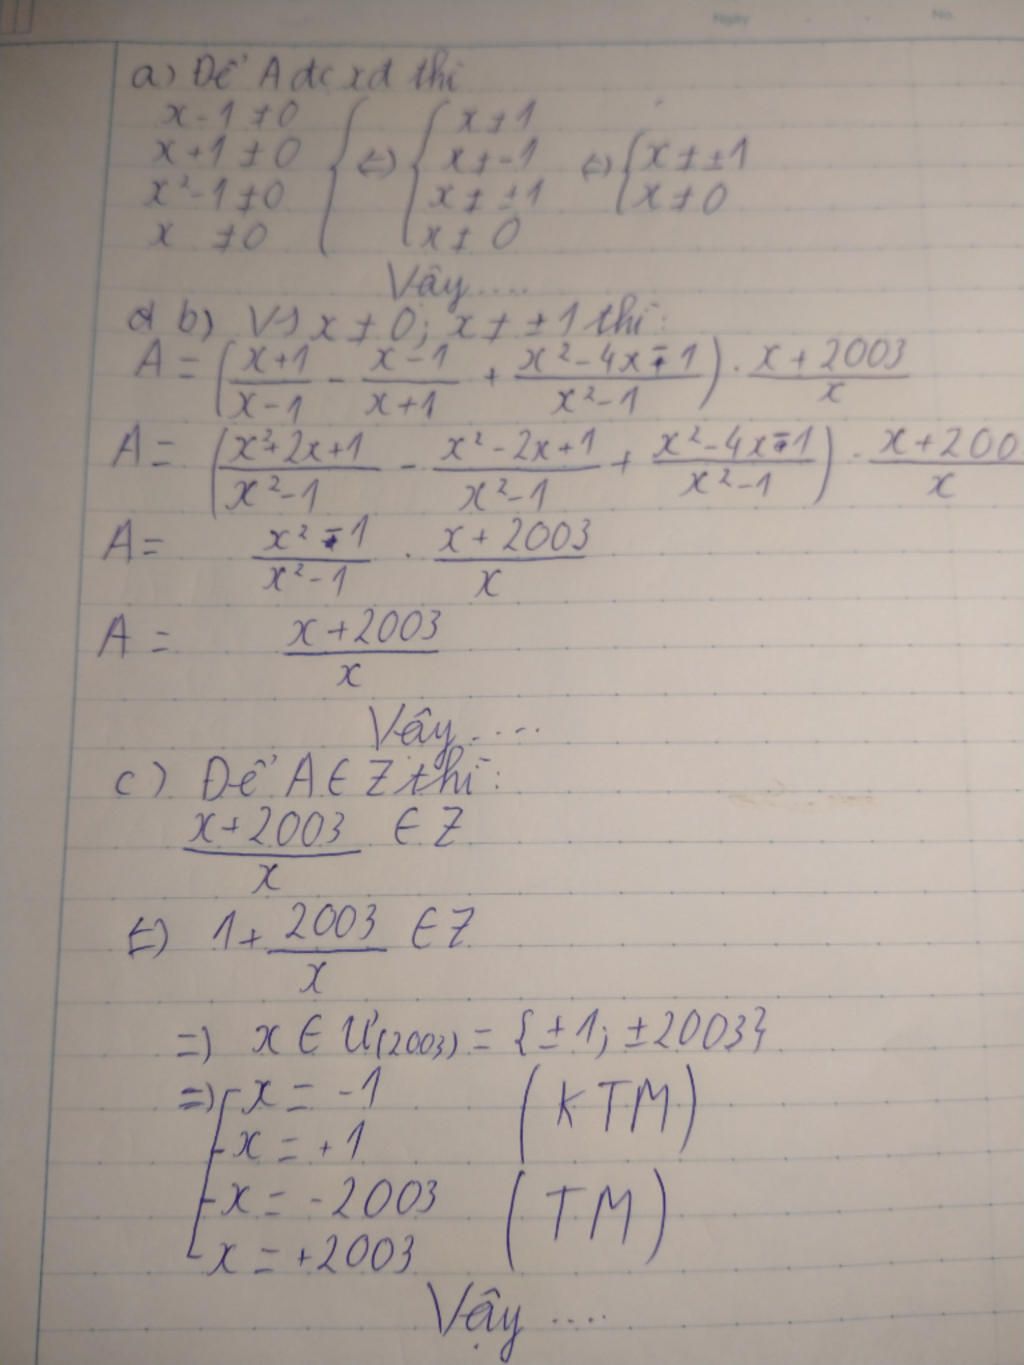 Ngày No.
a) Để A đc xđ thì
x-1≠0
x+1≠0
x²-1≠0
x ≠0
(=) { x≠1
x≠-1
x≠±1
x≠0
(=) { x≠±1
x≠0
Vậy....
b) Vs x≠0; x≠±1 thì:
A = (x+1/x-1 - x-1/x+1 + x²-4x-1/x²-1) . x+2003/x
A = (x²+2x+1/x²-1 - x²-2x+1/x²-1 + x²-4x-1/x²-1) . x+200/x
A = x²-1/x²-1 . x+2003/x
A = x+2003/x
Vậy....
c) Để A ∈ Z thì:
x+2003/x ∈ Z
(=) 1+ 2003/x ∈ Z
=) x ∈ Ư(2003) = {±1; ±2003}
=) [ x = -1 (KTM)
x = +1
x = -2003 (TM)
x = +2003
Vậy ....